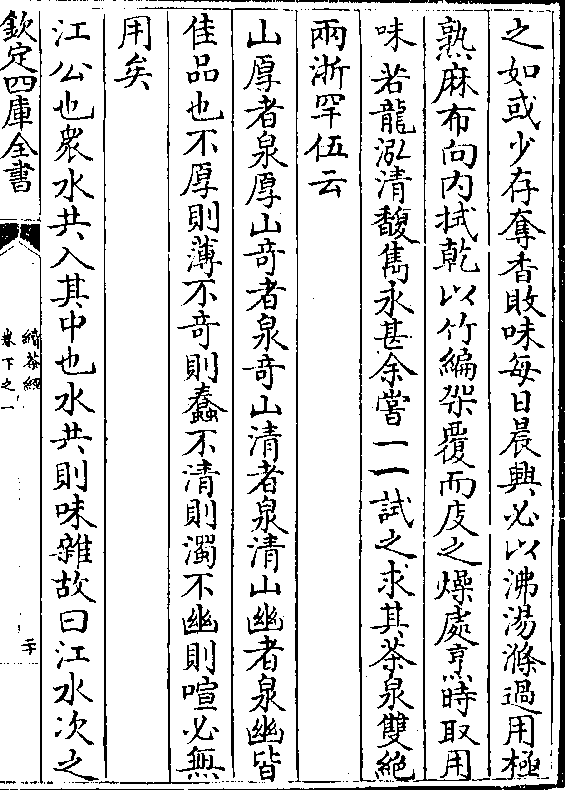 之如或少存奪香敗味每日晨興必以沸湯滌過用極
熟麻布向内拭乾以竹編架覆而庋之燥處烹時取用
味若龍泓清馥雋永甚余嘗一一試之求其茶泉雙絶
兩浙罕伍云
山厚者泉厚山竒者泉竒山清者泉清山幽者泉幽皆
佳品也不厚則薄不竒則蠢不清則濁不幽則喧必無
用矣
江公也衆水共入其中也水共則味雜故曰江水次之
欽定四庫全書
續茶經
卷下之一
二十